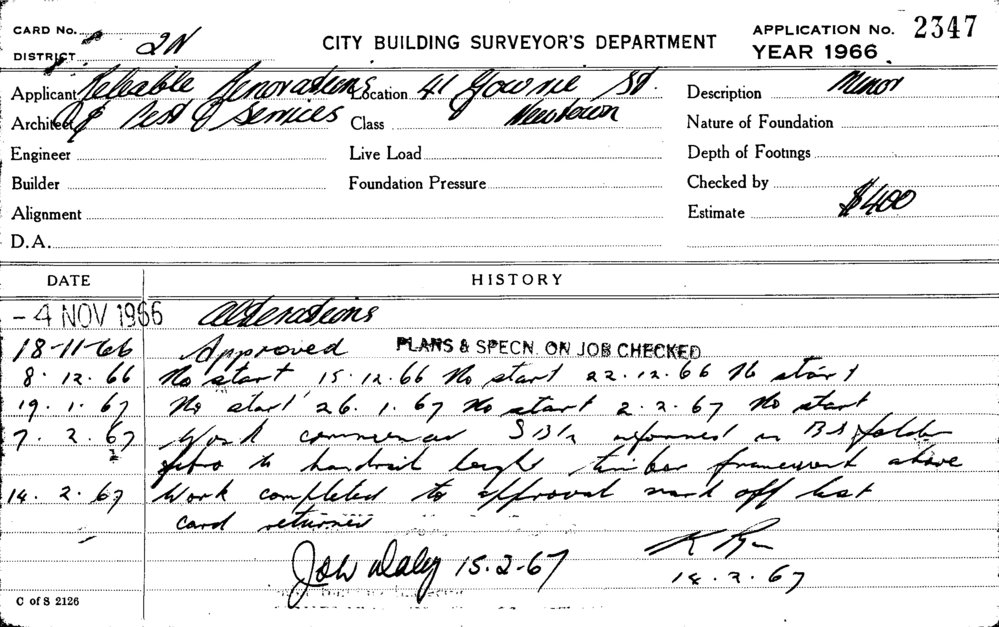 CARD No.
DISTRICT 2N
CITY BUILDING SURVEYOR'S DEPARTMENT
APPLICATION No. 2347
YEAR 1966
Applicant Releable Renovations Location 41 Gowrie St. Description Minor
Architect & Pest Services Class Newtown Nature of Foundation
Engineer Live Load Depth of Footings
Builder Foundation Pressure Checked by
Alignment Estimate $400
D.A.
DATE HISTORY
- 4 NOV 1966 Alterations
18-11-66 Approved PLANS & SPECN. ON JOB CHECKED
8. 12. 66 No start 15.12.66 No start 22.12.66 No start
19. 1. 67 No start 26. 1. 67 No start 2. 2. 67 No start
7. 2. 67 Work commenced in
fibro to handrail height timber framework above
14. 2. 67 Work completed to approval mark off list
card returned
John Daly 15.2.67 K
14. 2. 67
C of S 2126